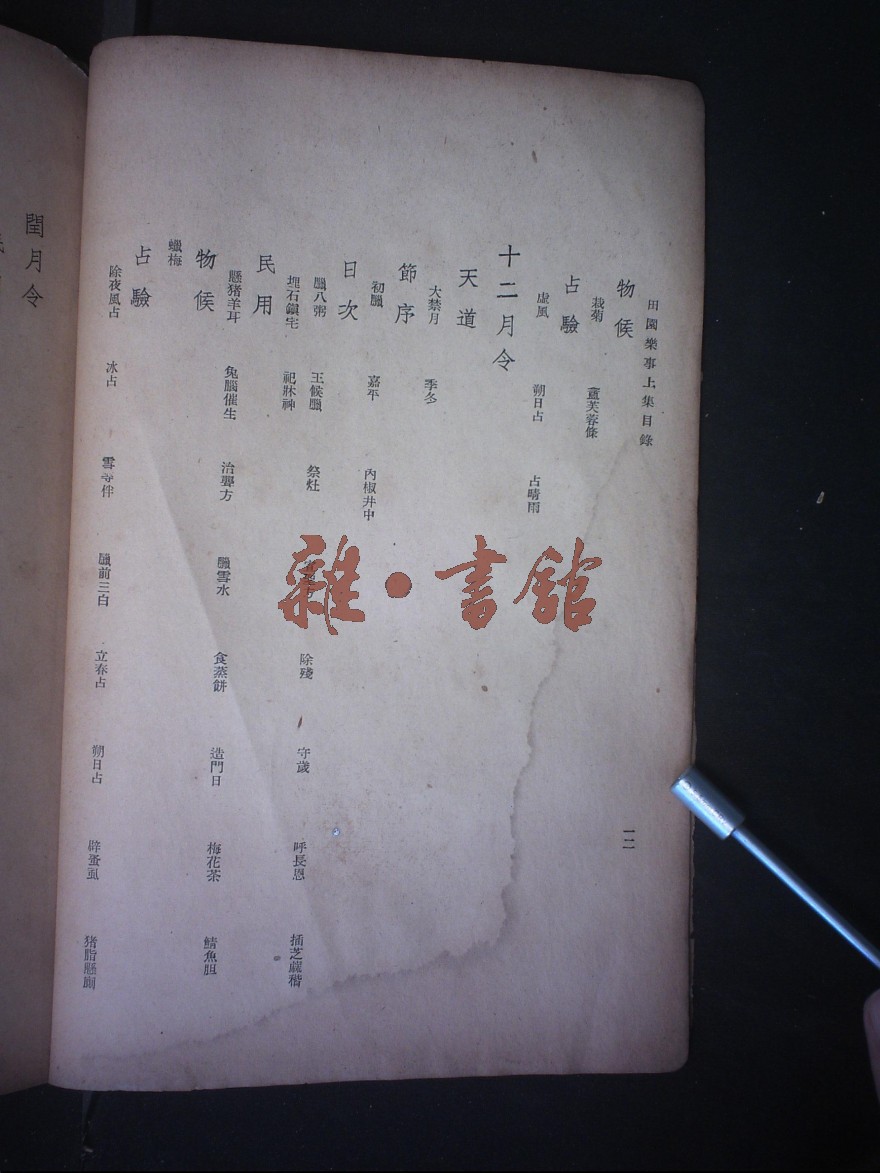 田園樂事上集目錄
一二
物候
栽菊 薹芙蓉條
占驗
虛風 朔日占 占晴雨
十二月令
天道
大禁月 季冬
節序
初臘 嘉平 內椒井中
日次
臘八粥 王候臘 祭灶 除殘 守歲 呼長恩 插芝蔴稭
埋石鎮宅 祀牀神
民用
懸猪羊耳 兔腦催生 治聾方 臘雪水 食蒸餅 造門日 梅花茶 鯖魚胆
物候
蠟梅
占驗
除夜風占 冰占 雪等伴 臘前三白 立春占 朔日占 辟蚤虱 猪脂懸厠
閏月令
雜·書館